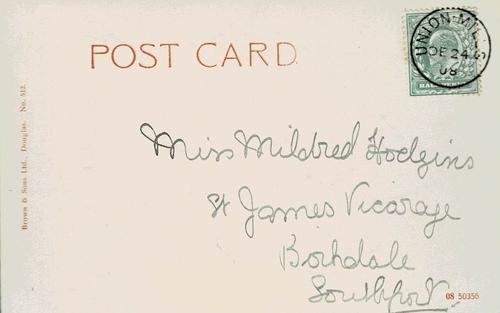 POST CARD.
UNION MILLS
DE 24
08
HALFPENNY
Miss Mildred Hodgins
St James Vicarage
Birkdale
Southport
Brown & Sons Ltd., Douglas. No. 512.
08 50356